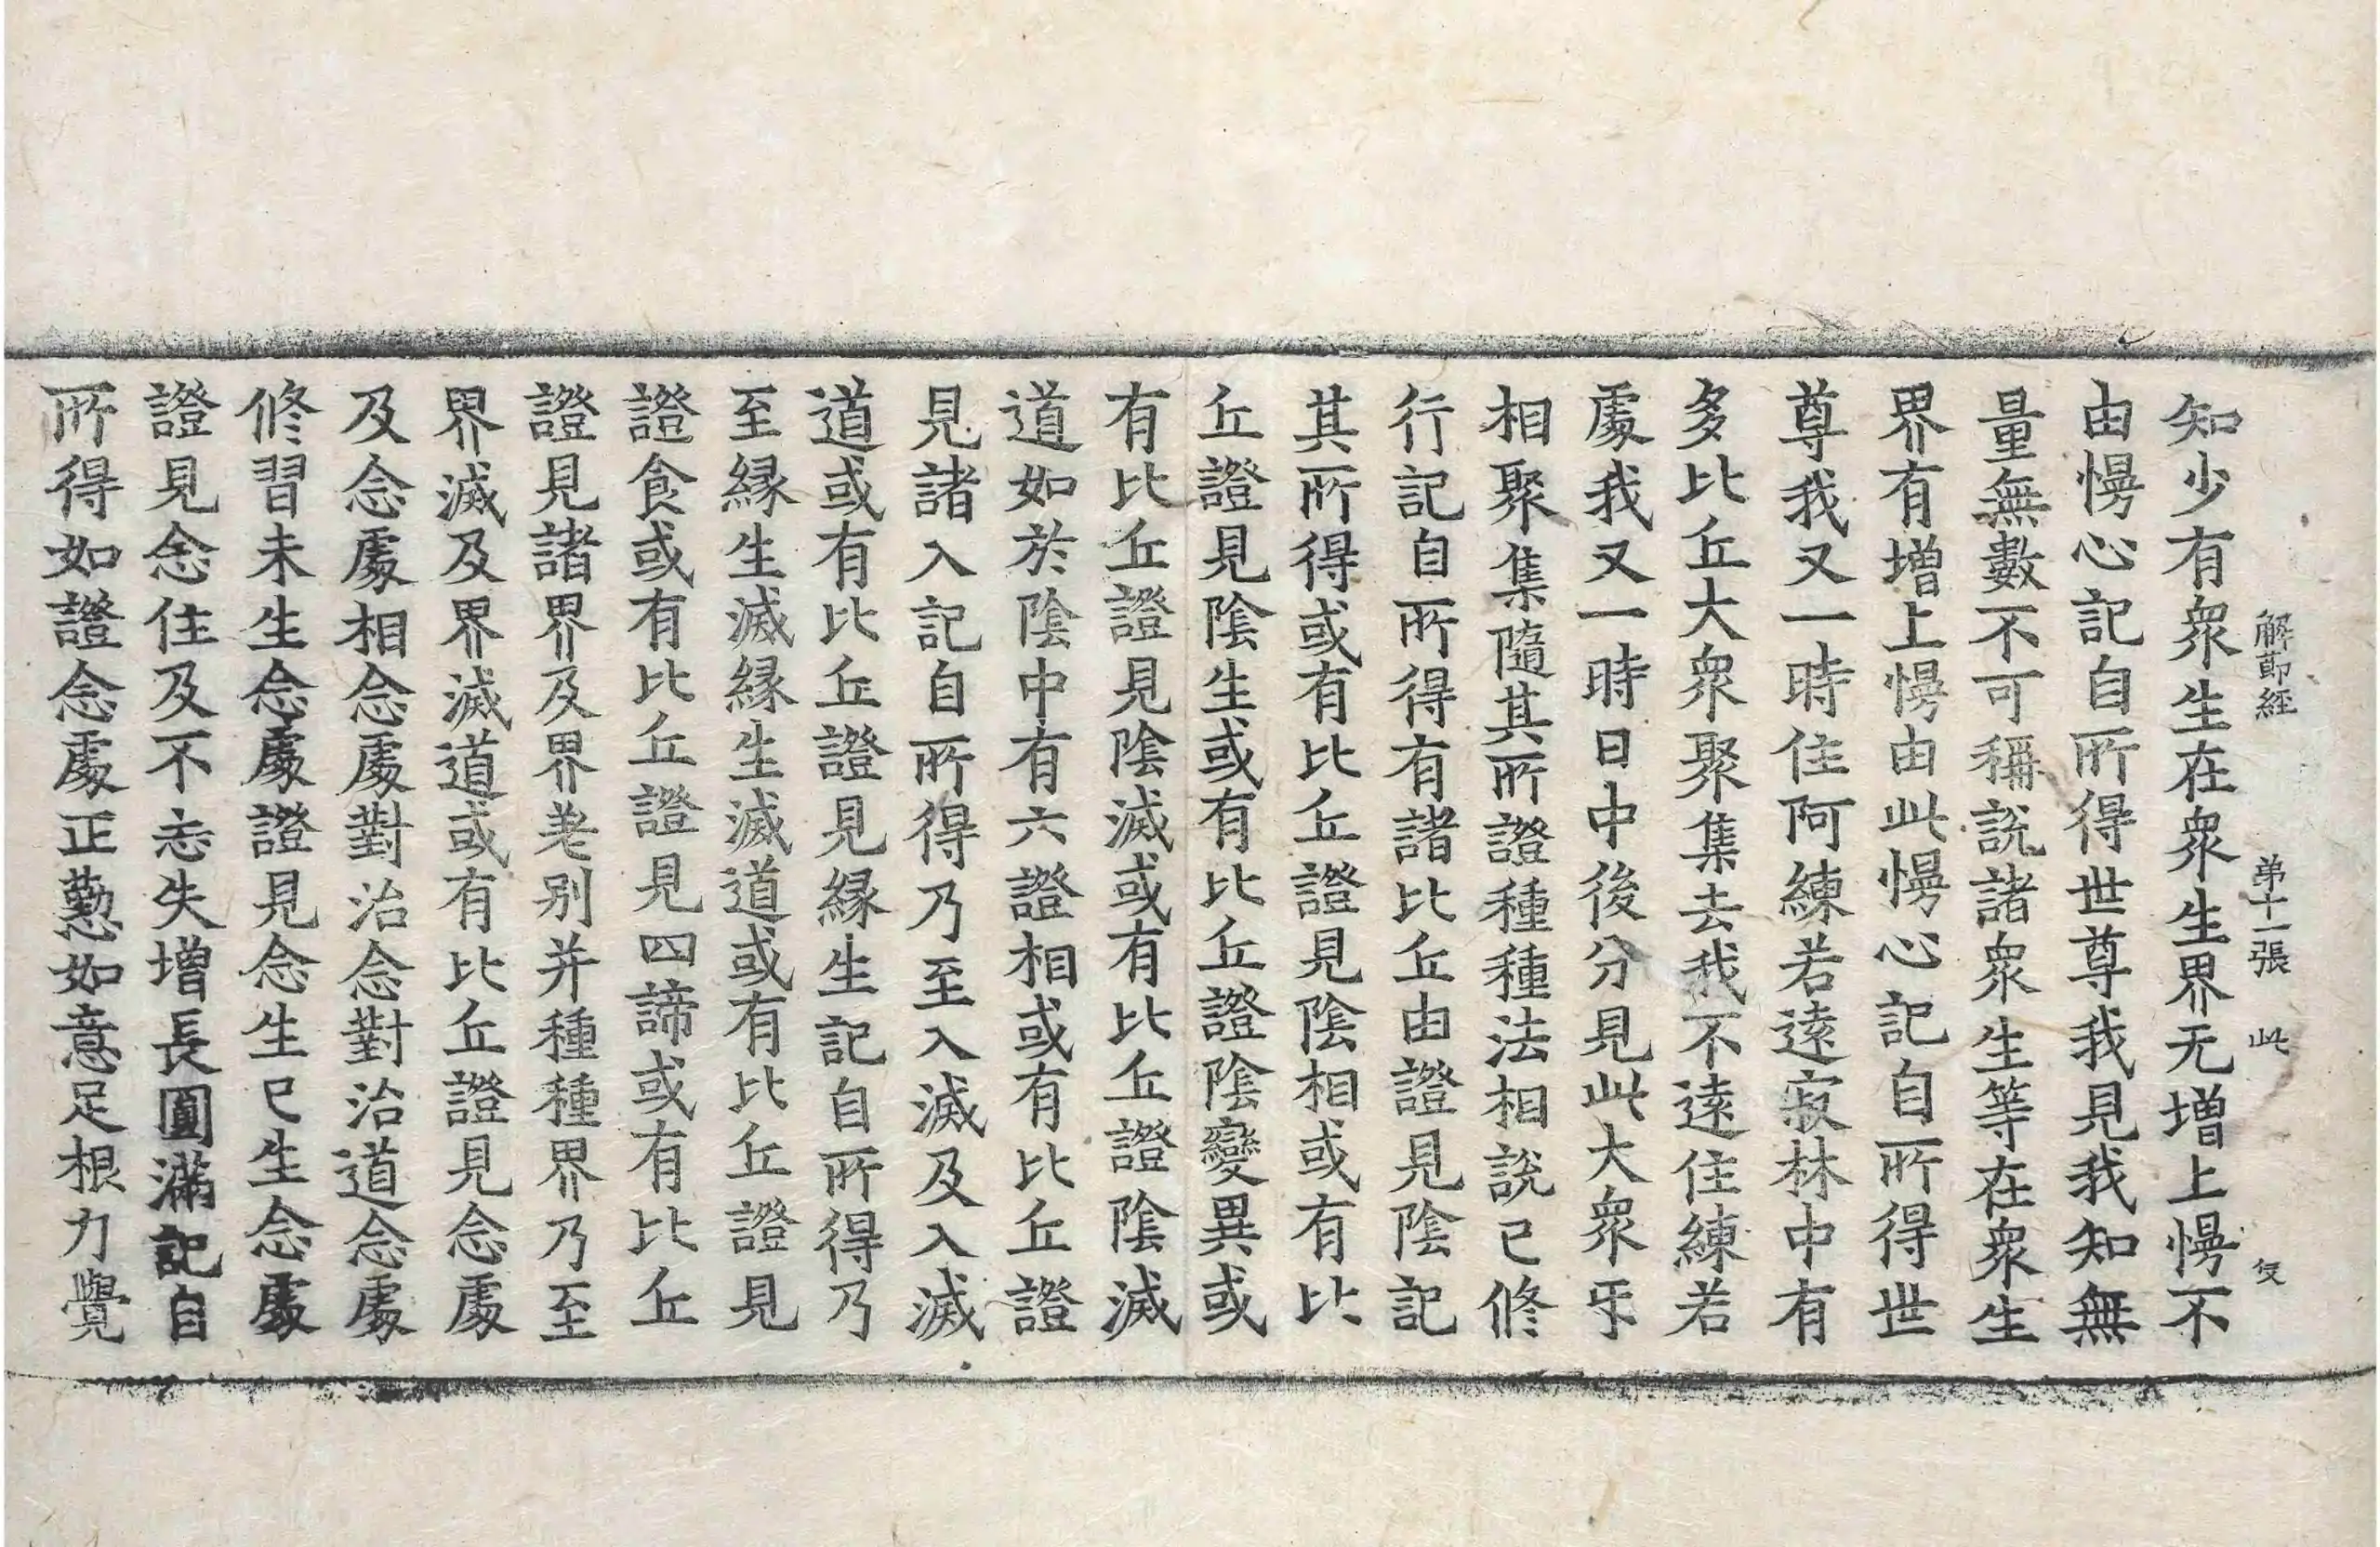 解節經 第十一張 此 攵
知少有衆生在衆生界无增上慢不
由慢心記自所得世尊我見我知無
量無數不可稱說諸衆生等在衆生
界有增上慢由此慢心記自所得世
尊我又一時住阿練若遠寂林中有
多比丘大衆聚集去我不遠住練若
處我又一時日中後分見此大衆㸦
相聚集隨其所證種種法相說已修
行記自所得有諸比丘由證見陰記
其所得或有比丘證見陰相或有比
丘證見陰生或有比丘證陰變異或
有比丘證見陰滅或有比丘證陰滅
道如於陰中有六證相或有比丘證
見諸入記自所得乃至入滅及入滅
道或有比丘證見緣生記自所得乃
至緣生滅緣生滅道或有比丘證見
證食或有比丘證見四諦或有比丘
證見諸界及界差別并種種界乃至
界滅及界滅道或有比丘證見念處
及念處相念處對治念對治道念處
修習未生念處證見念生已生念處
證見念住及不忘失增長圓滿記自
所得如證念處正懃如意足根力覺